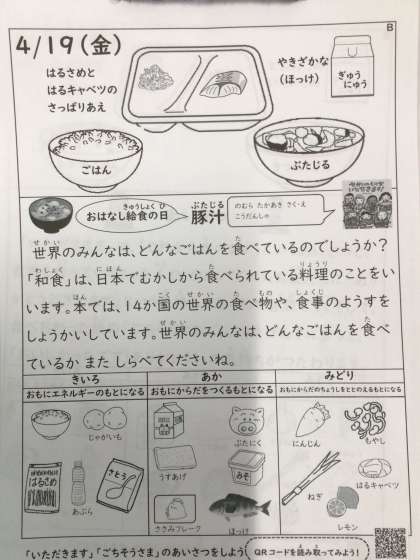 B
4/19(金)
はるさめと
はるキャベツの
さっぱりあえ
やきざかな
(ほっけ)
ぎゅう
にゅう
ごはん
ぶたじる
きゅうしょく ひ
おはなし給食の日
ぶたじる
豚汁
のむら たかあき さく・え
こうだんしゃ
せかい た
世界のみんなは、どんなごはんを食べているのでしょうか?
わしょく にほん た りょうり
「和食」は、日本でむかしから食べられている料理のことをい
ほん こく せかい た もの しょくじ
います。本では、14か国の世界の食べ物や、食事のようすを
せかい た
しょうかいしています。世界のみんなは、どんなごはんを食べ
ているか また しらべてくださいね。
きいろ あか みどり
おもにエネルギーのもとになる おもにからだをつくるもとになる おもにからだのちょうしをととのえるもとになる
じゃがいも
ぶたにく
にんじん
もやし
はるさめ
あぶら
さとう
うすあげ
みそ
はるキャベツ
ねぎ
ささみフレーク
ほっけ
レモン
「いただきます」「ごちそうさま」のあいさつをしよう
QRコードを読み取ってみよう!